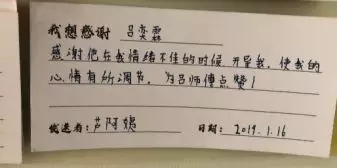 我想感谢 吕奕霖
感谢他在我情绪不佳的时候开导我，使我的
心情有所调节，为吕师傅点赞！
优选者：芦阿姨 日期：2019.1.16